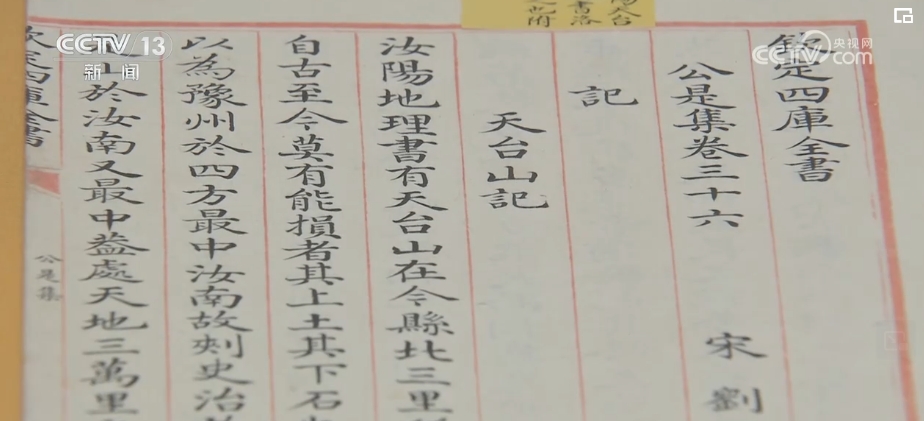 欽定四庫全書
公是集卷三十六
宋 劉
記
天台山記
汝陽地理書有天台山在今縣北三里
自古至今莫有能損者其上土其下石
以為豫州於四方最中汝南故刺史治
山於汝南又最中蓋處天地三萬里
定四庫全書
公是集
CCTV 13
新闻
央视网
CCTV.com